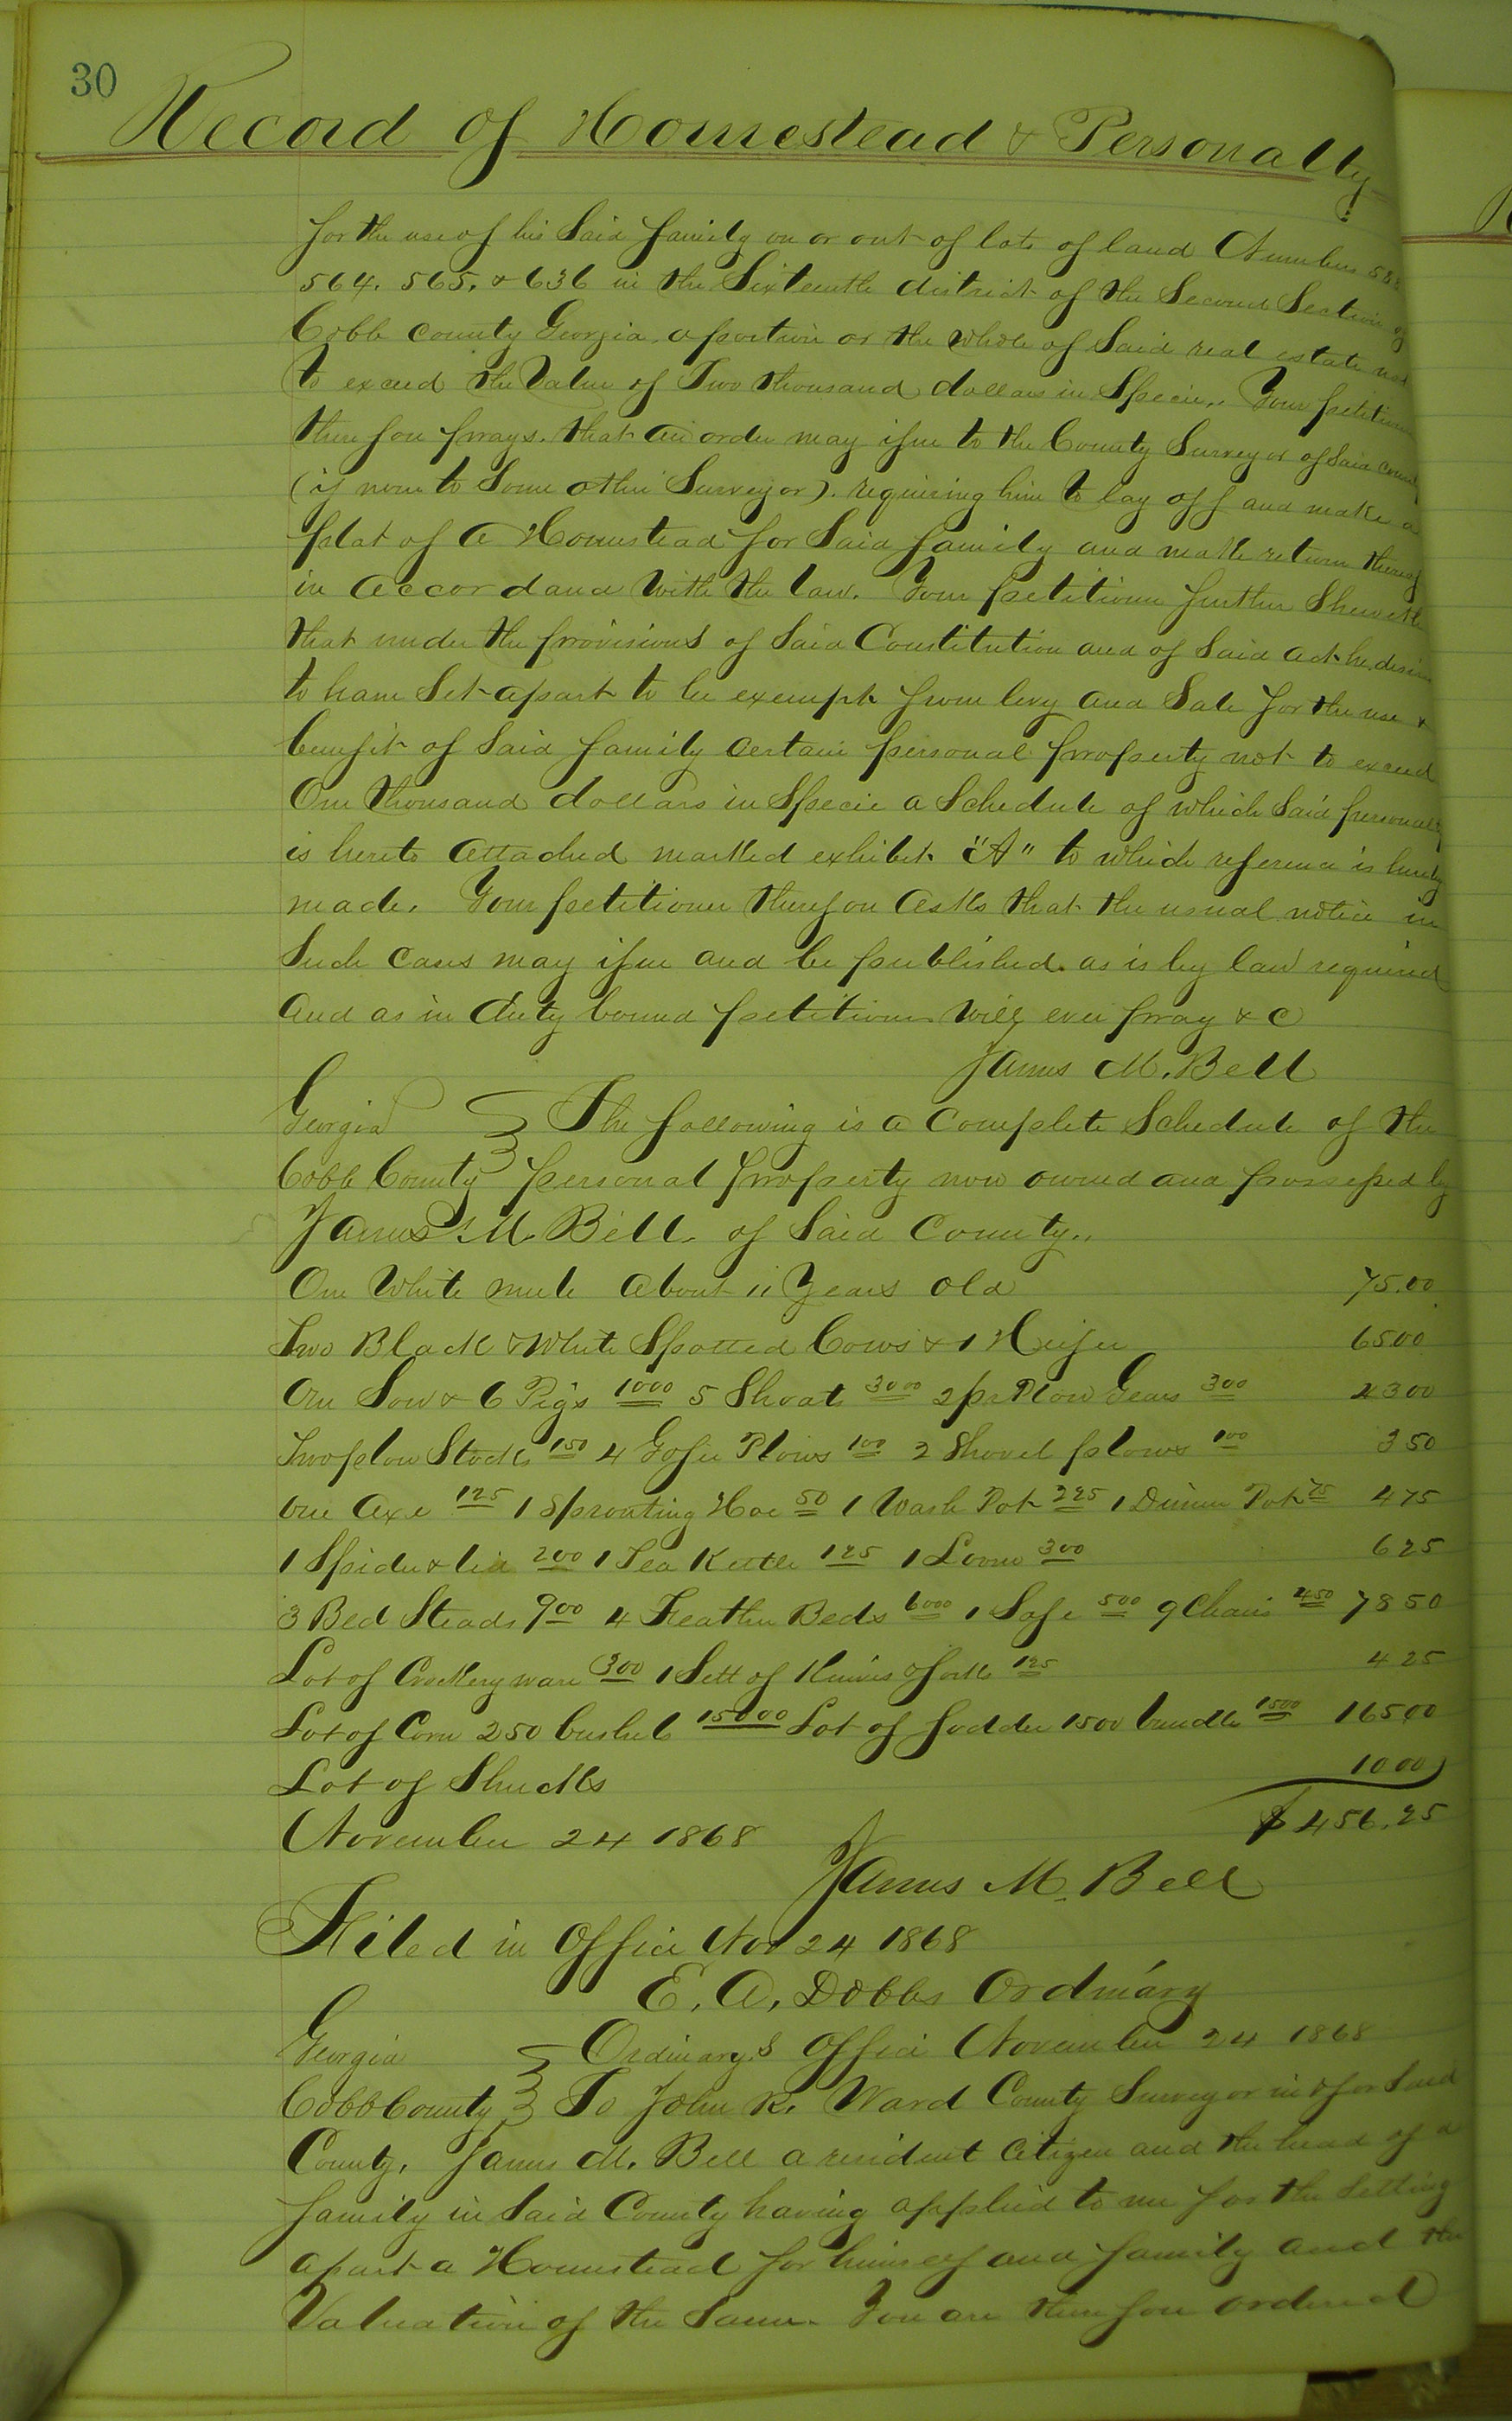 30
Record of Homestead & Personalty
for the use of his Said family on or out of lots of land Numbers
564. 565. & 636 in the Sixteenth district of the Second Section of
Cobb county Georgia. a portion or the whole of Said real estate not
to exceed the Value of Two thousand dollars in Specie.. Your petitioner
therefore prays. that an order may issue to the County Surveyor of Said county
(if none to Some other Surveyor). requiring him to lay off and make a
plat of a Homestead for Said family and make return thereof
in accordance With the law. Your petitioner further Sheweth
that under the provisions of Said Constitution and of Said act he desires
to have Set apart to be exempt from levy and Sale for the use &
benefit of Said family certain personal property not to exceed
One thousand dollars in Specie a Schedule of which Said personalty
is hereto attached marked exhibit. "A" to which reference is hereby
made. Your petitioner therefore asks that the usual notice in
Such cases may issue and be published. as is by law required
And as in duty bound petitioner Will ever pray & C
James M. Bell
Georgia } The following is a complete Schedule of the
Cobb County } personal property now owned and possessed by
James M. Bell. of Said County..
One White mule about 11 Years old 75.00
Two Black & White Spotted Cows & 1 Heifer 6500
One Sow & 6 Pigs 1000 5 Shoats 3000 2 pr Plow Gears 300 4300
Two plow Stocks 150 4 Gofer Plows 100 2 Shovel plows 100 350
One Axe 125 1 Sprouting Hoe 50 1 Wash Pot 225 1 Dinner Pot 75 475
1 Spider & lid 200 1 Tea Kettle 125 1 Loom 300 625
3 Bed Steads 900 4 Feather Beds 6000 1 Safe 500 9 Chairs 450 7850
Lot of Crockery ware 300 1 Sett of Knives & forks 125 425
Lot of Corn 250 bushels 15000 Lot of fodder 1500 bundles 1500 16500
Lot of Shucks 1000
November 24 1868 $456.25
James M. Bell
Filed in Office Nov 24 1868
E. A. Dobbs Ordinary
Georgia } Ordinary's Office November 24 1868
Cobb County } To John R. Ward County Surveyor in & for Said
County. James M. Bell a resident citizen and the head of a
family in Said County having applied to me for the Setting
apart a Homestead for himself and family and the
Valuation of the Same. You are therefore ordered